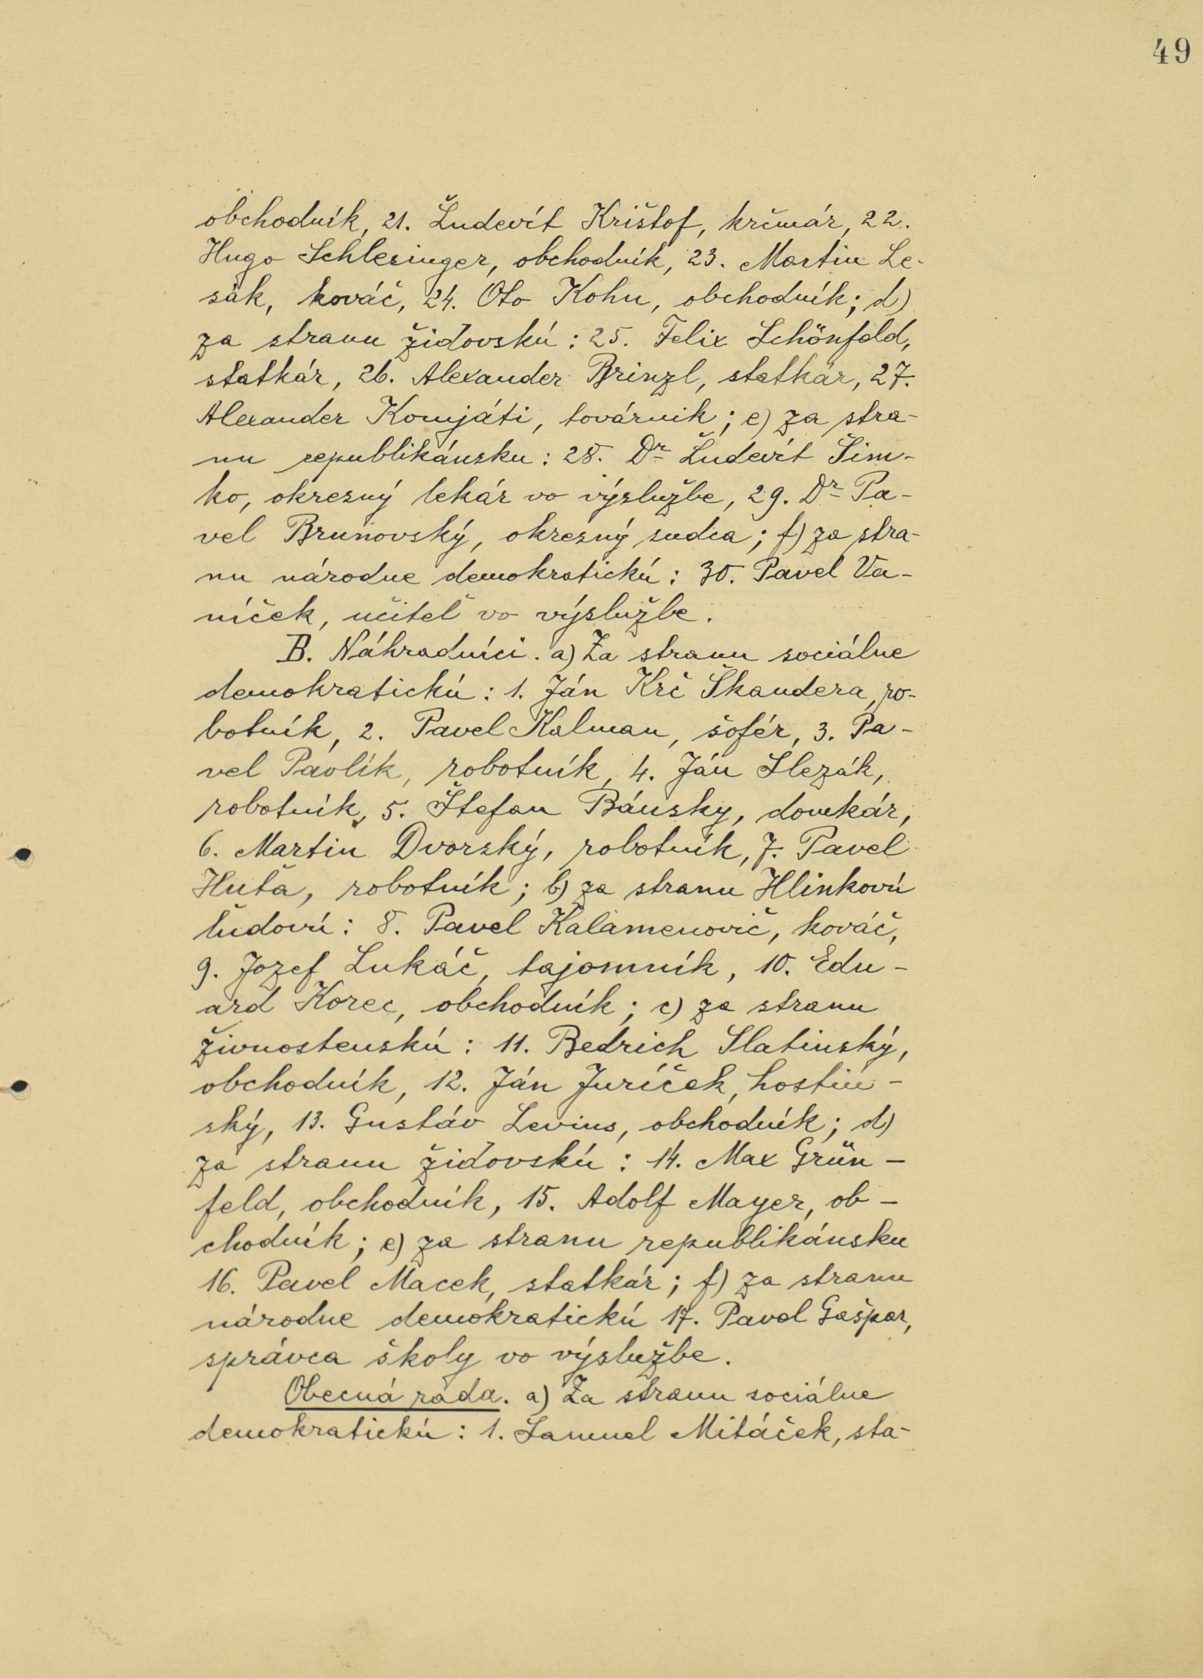 49
obchodník, 21. Ľudevít Krištof, krčmár, 22.
Hugo Schlesinger, obchodník, 23. Martin Le-
sák, kováč, 24. Oto Kohn, obchodník; d)
za stranu židovskú: 25. Felix Schönfeld,
statkár, 26. Alexander Brinzl, statkár, 27.
Alexander Komjáti, továrnik; e) za stra-
nu republikánsku: 28. Dr Ľudevít Šim-
ko, okresný lekár vo výslužbe, 29. Dr Pa-
vel Brunovský, okresný sudca; f) za stra-
nu národne demokratickú: 30. Pavel Va-
níček, učiteľ vo výslužbe.
B. Náhradníci. a) Za stranu sociálne
demokratickú: 1. Ján Krč Škandera, ro-
botník, 2. Pavel Kalman, šofér, 3. Pa-
vel Pavlík, robotník, 4. Ján Slezák,
robotník, 5. Štefan Bánsky, domkár,
6. Martin Dvorský, robotník, 7. Pavel
Huťa, robotník; b) za stranu Hlinkovú
ľudovú: 8. Pavel Kalamenovič, kováč,
9. Jozef Lukáč, tajomník, 10. Edu-
ard Korec, obchodník; c) za stranu
živnostenskú: 11. Bedrich Slatinský,
obchodník, 12. Ján Juríček, hostin-
ský, 13. Gustáv Levius, obchodník; d)
za stranu židovskú: 14. Max Grün-
feld, obchodník, 15. Adolf Mayer, ob-
chodník; e) za stranu republikánsku
16. Pavel Macek, statkár; f) za stranu
národne demokratickú 17. Pavel Gašpar,
správca školy vo výslužbe.
Obecná rada. a) Za stranu sociálne
demokratickú: 1. Samuel Mitáček, sta-